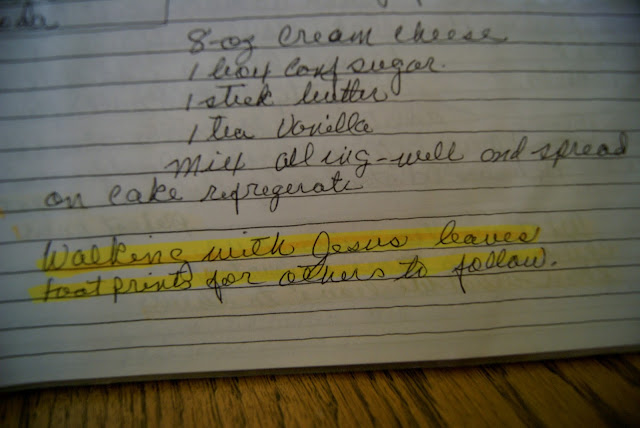 8-oz cream cheese
1 box conf sugar.
1 stick butter
1 tea Vanilla
mix all ing-well and spread
on cake refregerate
Walking with Jesus leaves
foot prints for others to follow.